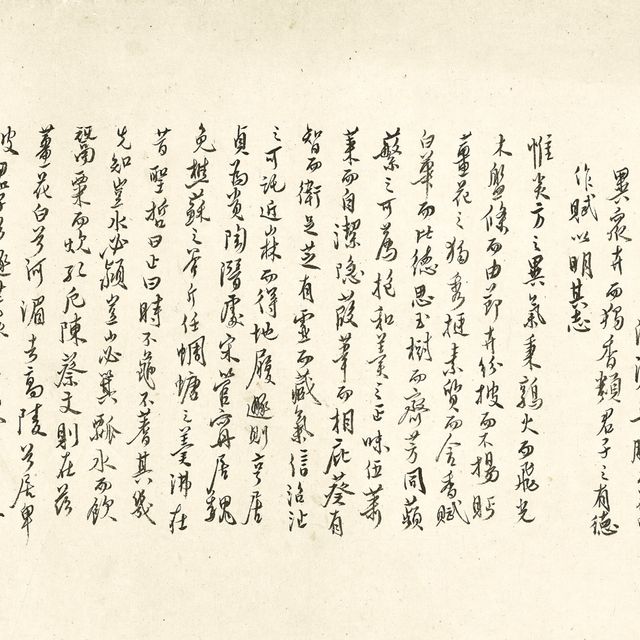 異衆卉而獨香類君子之有德
作賦以明其志
惟炎方之異氣秉鶉火而飛光
木盤條而由節卉紛披而不揚眄
薑花之獨秀挺素質而含香賦
白華而比德思玉樹而齊芳同蘋
蘩之可薦挹和羹之正味伍蕭
菜而自潔隱葭葦而相庇葵有
智而衛足芝有靈而藏氣信沼沚
之可託近山林而得地履遯則亨居
貞為貴陶潛處宋管寧居魏
免樵蘇之斧斤任蜩螗之羹沸在
昔聖哲曰止曰時不龜不蓍其幾
先知豈水必潁豈山必箕瓢水而飲
粟而炊孔厄陳蔡文則在茲
薑花白兮河湄去高陵兮居卑